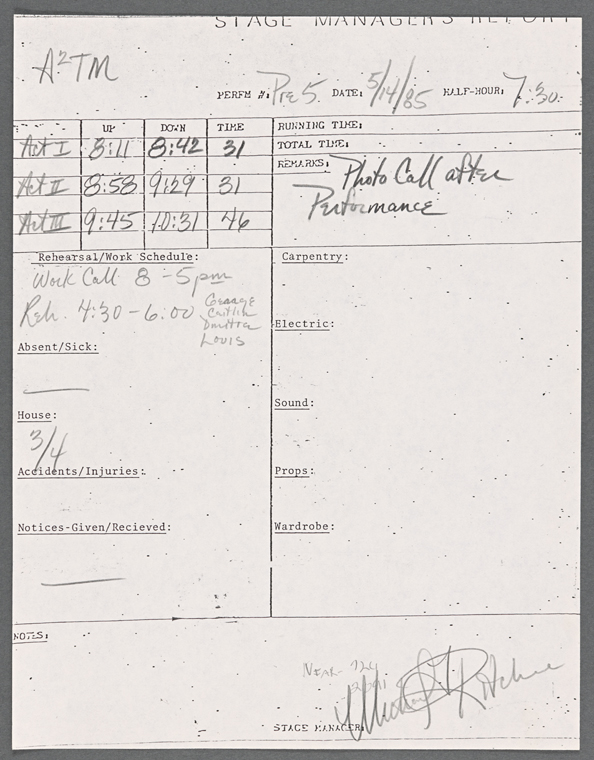 STAGE MANAGER'S REPORT
A²TM
PERFM #: Pre 5 DATE: 5/14/85 HALF-HOUR: 7:30
UP DOWN TIME
Act I 8:11 8:42 31
Act II 8:58 9:29 31
Act III 9:45 10:31 46
RUNNING TIME:
TOTAL TIME:
REMARKS: Photo Call after
Performance
Rehearsal/Work Schedule:
Work Call 8 - 5pm
Reh. 4:30 - 6:00 George
Caitlin
Dmitra
Louis
Absent/Sick:
House:
3/4
Accidents/Injuries:
Notices-Given/Recieved:
Carpentry:
Electric:
Sound:
Props:
Wardrobe:
NOTES:
STAGE MANAGER: